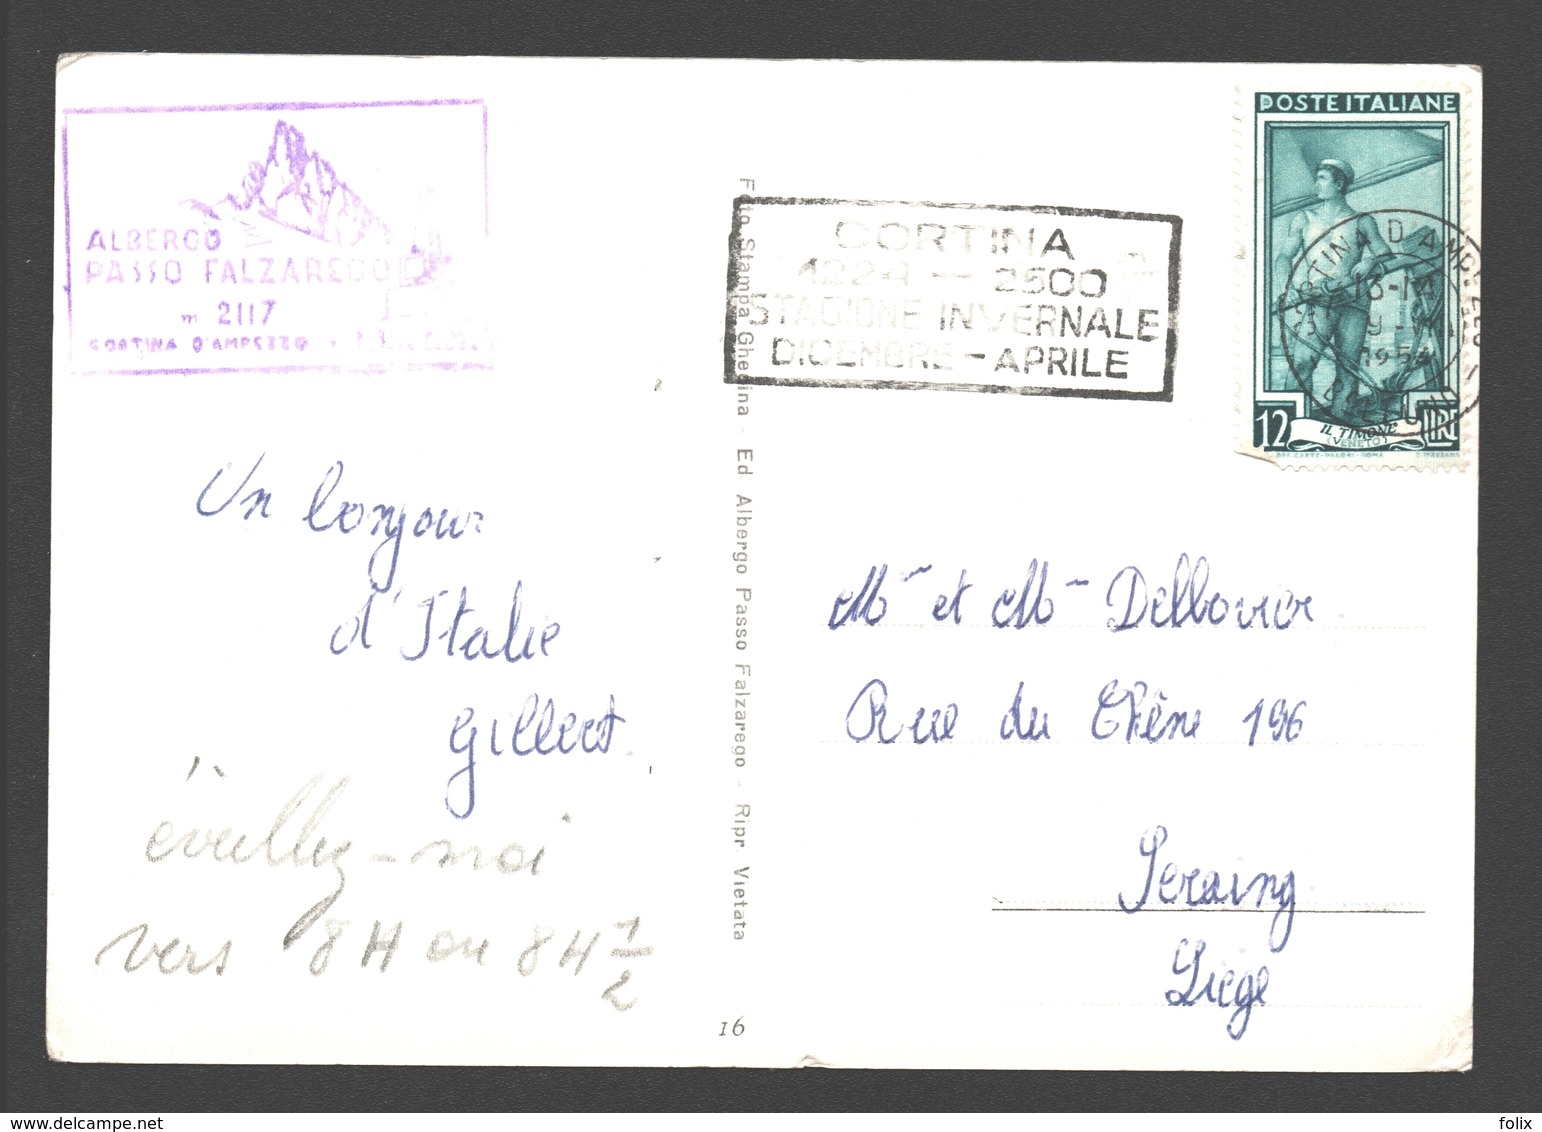 ALBERGO
PASSO FALZAREGO
m 2117
CORTINA D'AMPEZZO
Un bonjour
d'Italie
Gilbert
éveillez-moi
vers 8H ou 8H 1/2
Foto Stampa Ghedina - Ed Albergo Passo Falzarego - Ripr Vietata
16
CORTINA
1224 - 2500
STAGIONE INVERNALE
DICEMBRE - APRILE
POSTE ITALIANE
CORTINA D'AMPEZZO
BELLUNO
12 IL TIMONE LIRE
(VENETO)
Mr et Mme Delbovier
Rue du Chêne 196
Seraing
Liège
folix